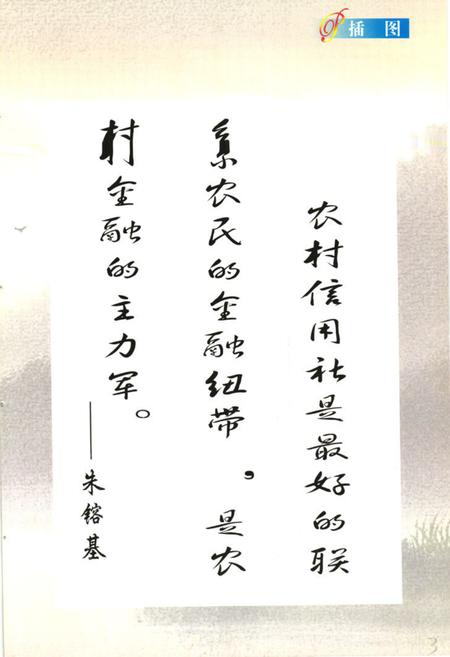 插 图
农村信用社是最好的联
系农民的金融纽带，是农
村金融的主力军。
——朱镕基
3